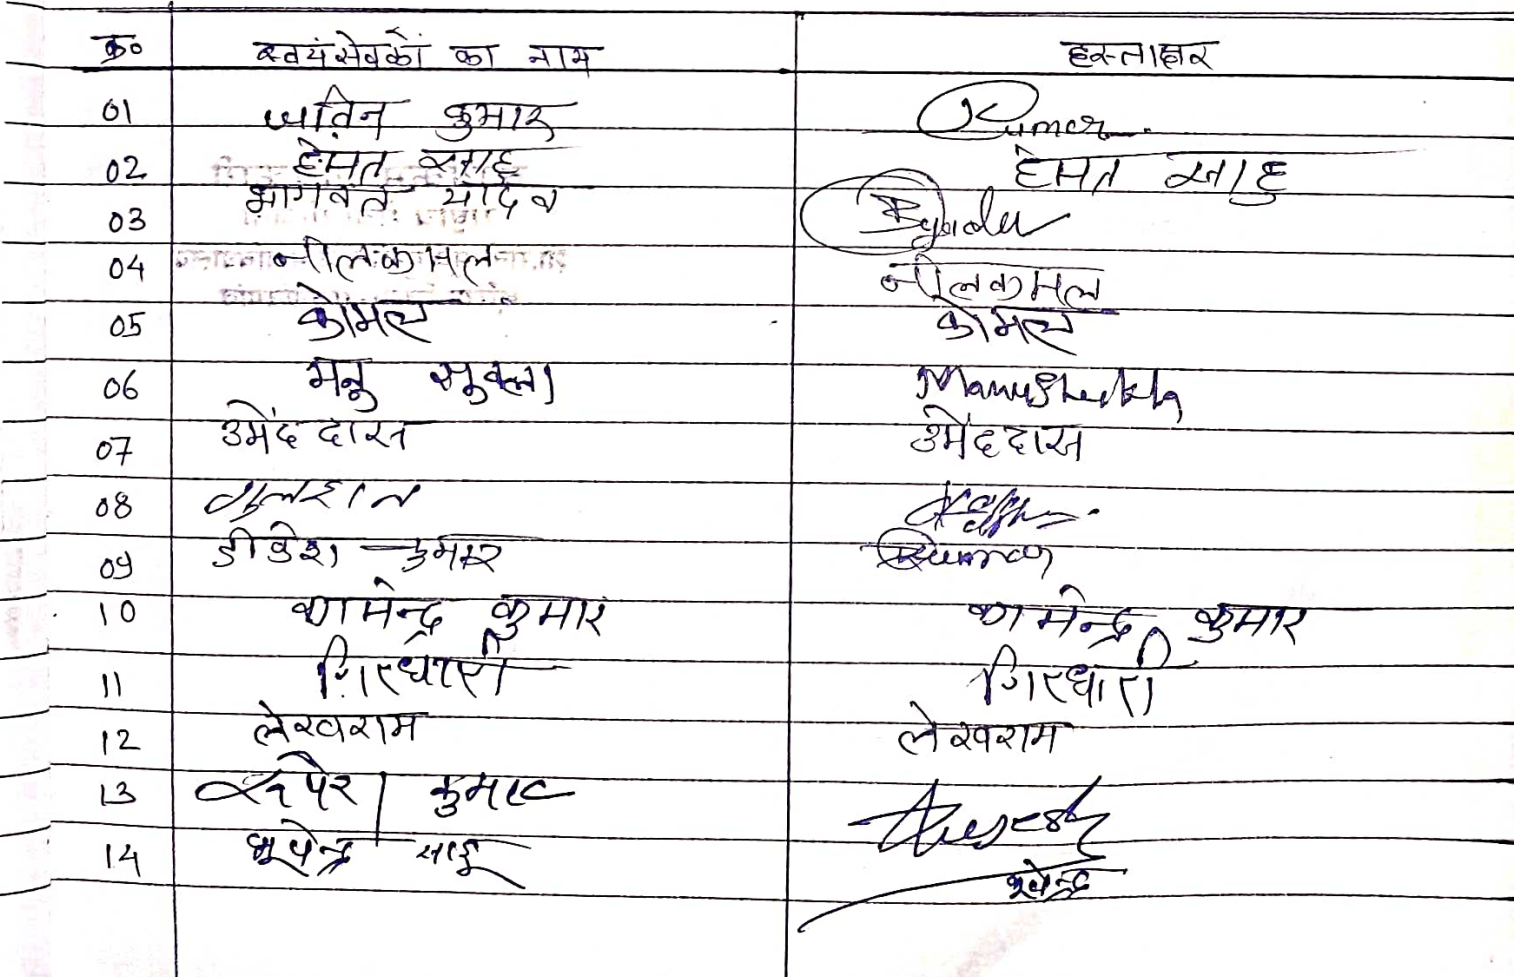 क्र० स्वयंसेवकों का नाम हस्ताक्षर
01 जतिन कुमार Kumar
02 हेमंत साहू हेमंत साहू
03 भागवत यादव
04 नीलकमल नीलकमल
05 कोमल कोमल
06 मनु सुक्ला Manu Shukla
07 उमेंद दास उमेंद दास
08 गुलशन
09 डीकेश कुमार
10 कामेन्द्र कुमार कामेन्द्र कुमार
11 गिरधारी गिरधारी
12 लेखराम लेखराम
13 कुमार
14 भूपेन्द्र साहू भूपेन्द्र